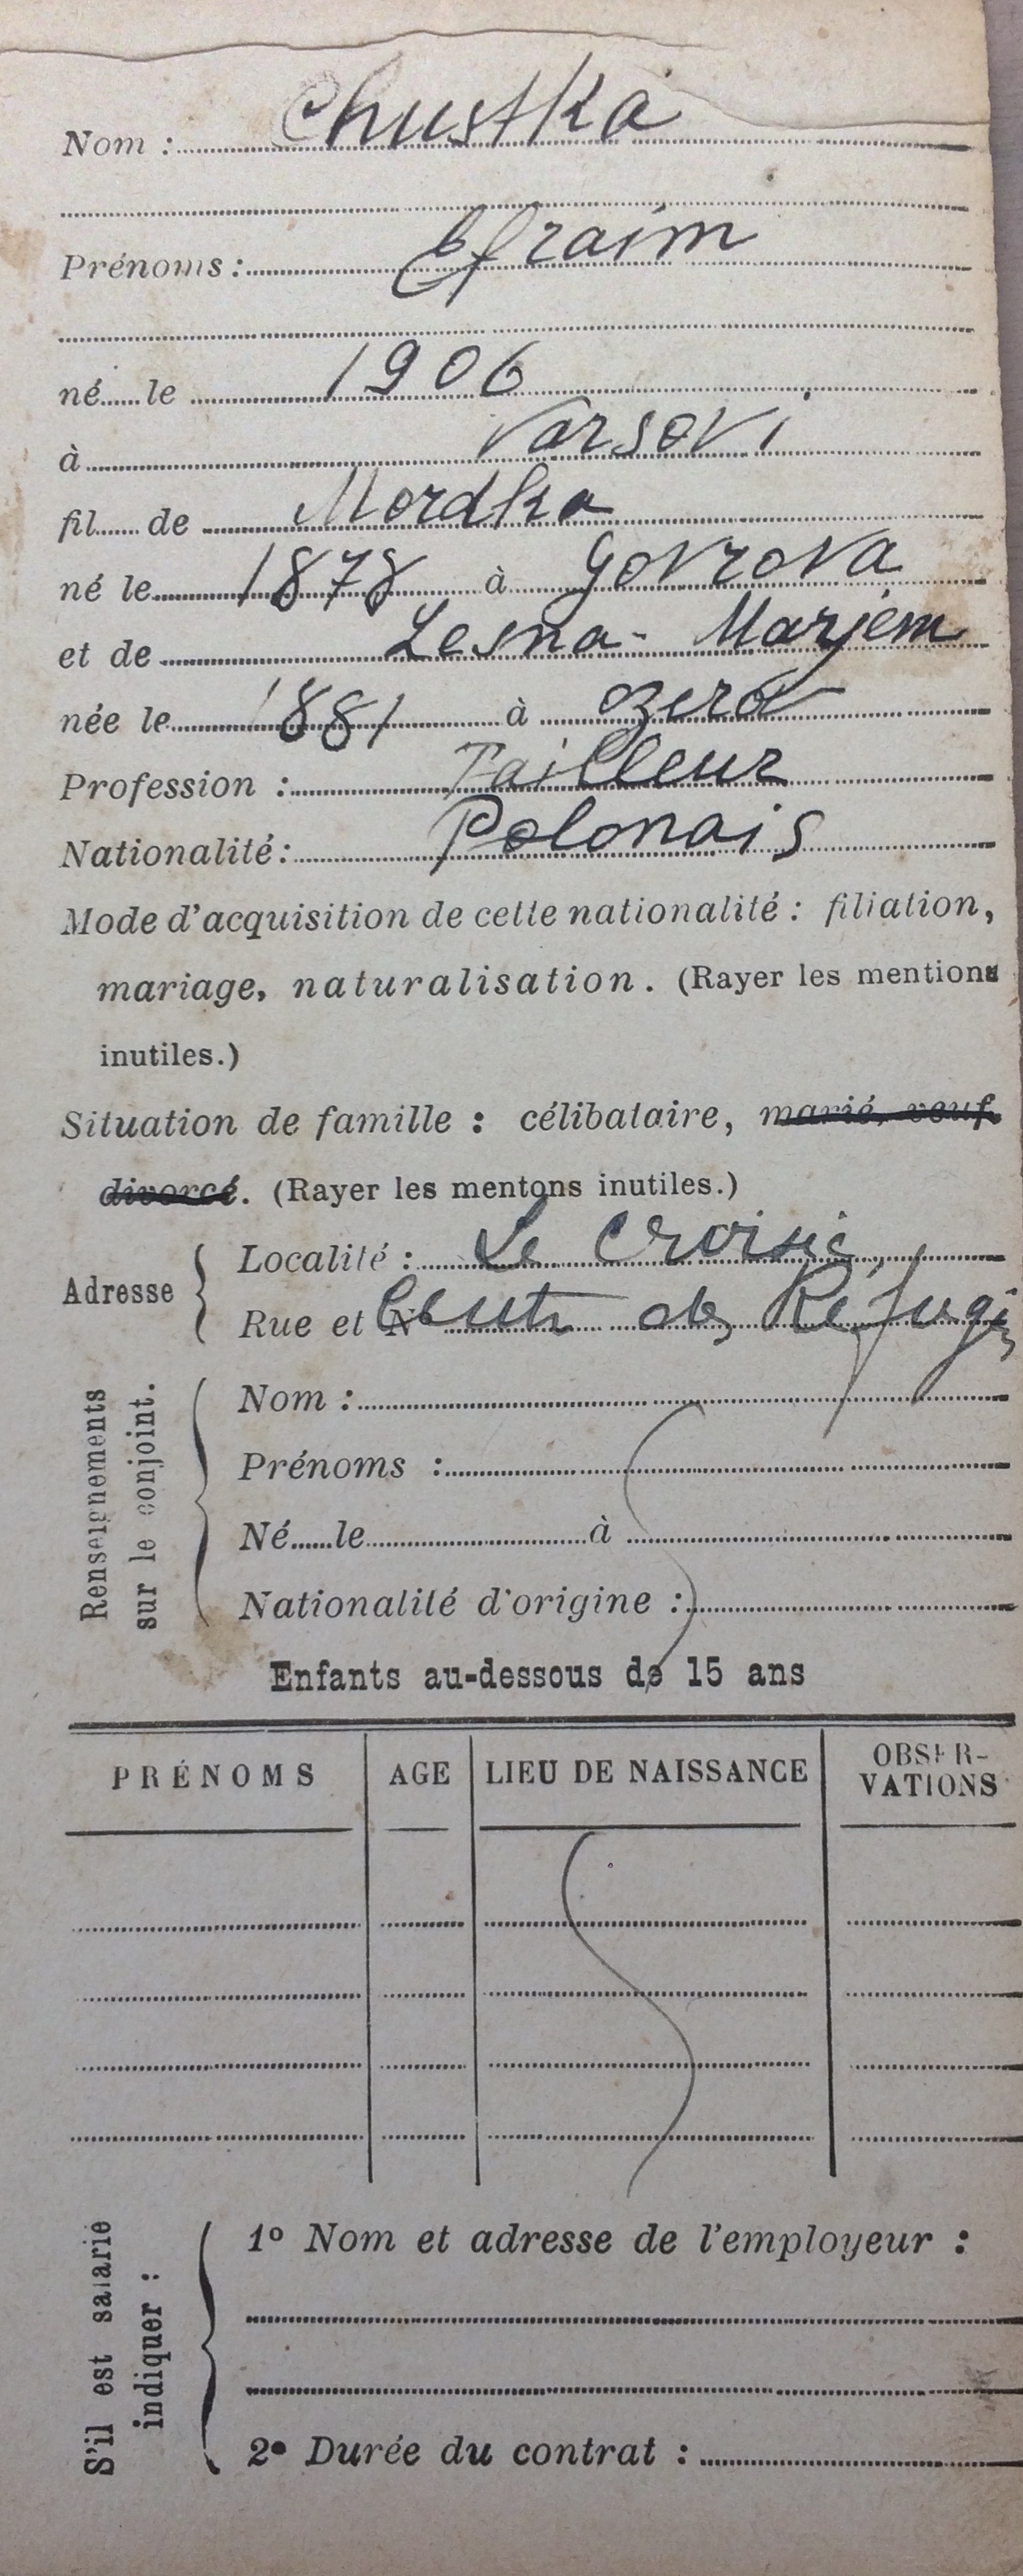 Nom : Chustka
Prénoms : Efraim
né le 1906
à Varsovi
fil de Mordka
né le 1878 à Govrova
et de Lesna - Marjem
née le 1881 à
Profession : Tailleur
Nationalité : Polonais
Mode d'acquisition de cette nationalité : filiation,
mariage, naturalisation. (Rayer les mentions
inutiles.)
Situation de famille : célibataire, marié, veuf
divorcé. (Rayer les mentons inutiles.)
Adresse
Localité : Le Croisic
Rue et N° Centre des Réfugiés
Renseignements
sur le conjoint.
Nom :
Prénoms :
Né le à
Nationalité d'origine :
Enfants au-dessous de 15 ans
PRÉNOMS AGE LIEU DE NAISSANCE OBSER-
VATIONS
S'il est salarié
indiquer :
1º Nom et adresse de l'employeur :
2º Durée du contrat :